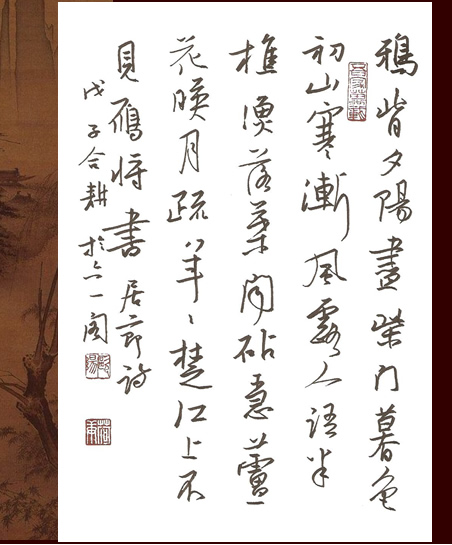 鴉背夕陽盡柴門暮色
初山寒漸風露人語半
樵漁落葉聞砧急蘆
花暎月疏年々楚江上不
見雁將書 居節詩
戊子合耕於六一閣